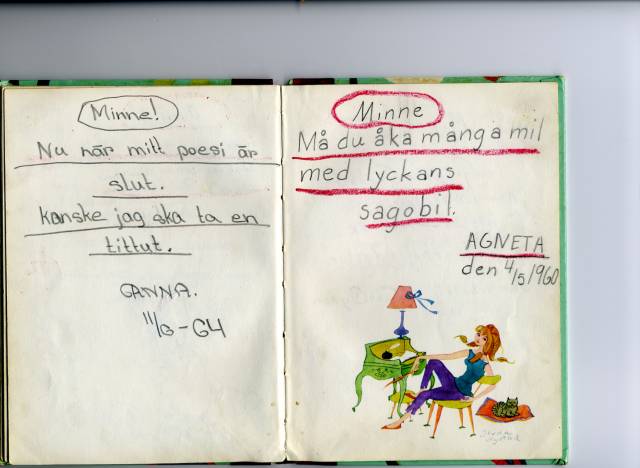 Minne!
Nu när mitt poesi är
slut.
Kanske jag ska ta en
tittut.
Minne
Må du åka många mil
med lyckans
sagobil.
AGNETA
den 4/5 1960